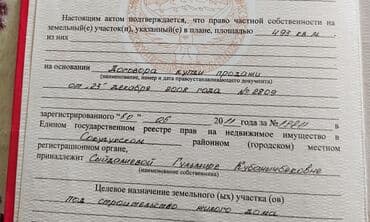 Настоящим актом подтверждается, что право частной собственности на
земельный(е) участок(и), указанный(е) в плане, площадью 493 кв.м.
из них
на основании Договора купли продажи
(наименование, номер и дата правоустанавливающего документа)
от "23" декабря 2008 года № 2809
зарегистрированного "10" 06 2011 года за №
Едином государственном реестре прав на недвижимое имущество в
Сокулукском районном (городском) местном
регистрационном органе,
принадлежит Сейдалиевой Гульмире Кубанычбековне
(наименование собственника)
Целевое назначение земельного (ых) участка (ов)
под строительство жилого дома